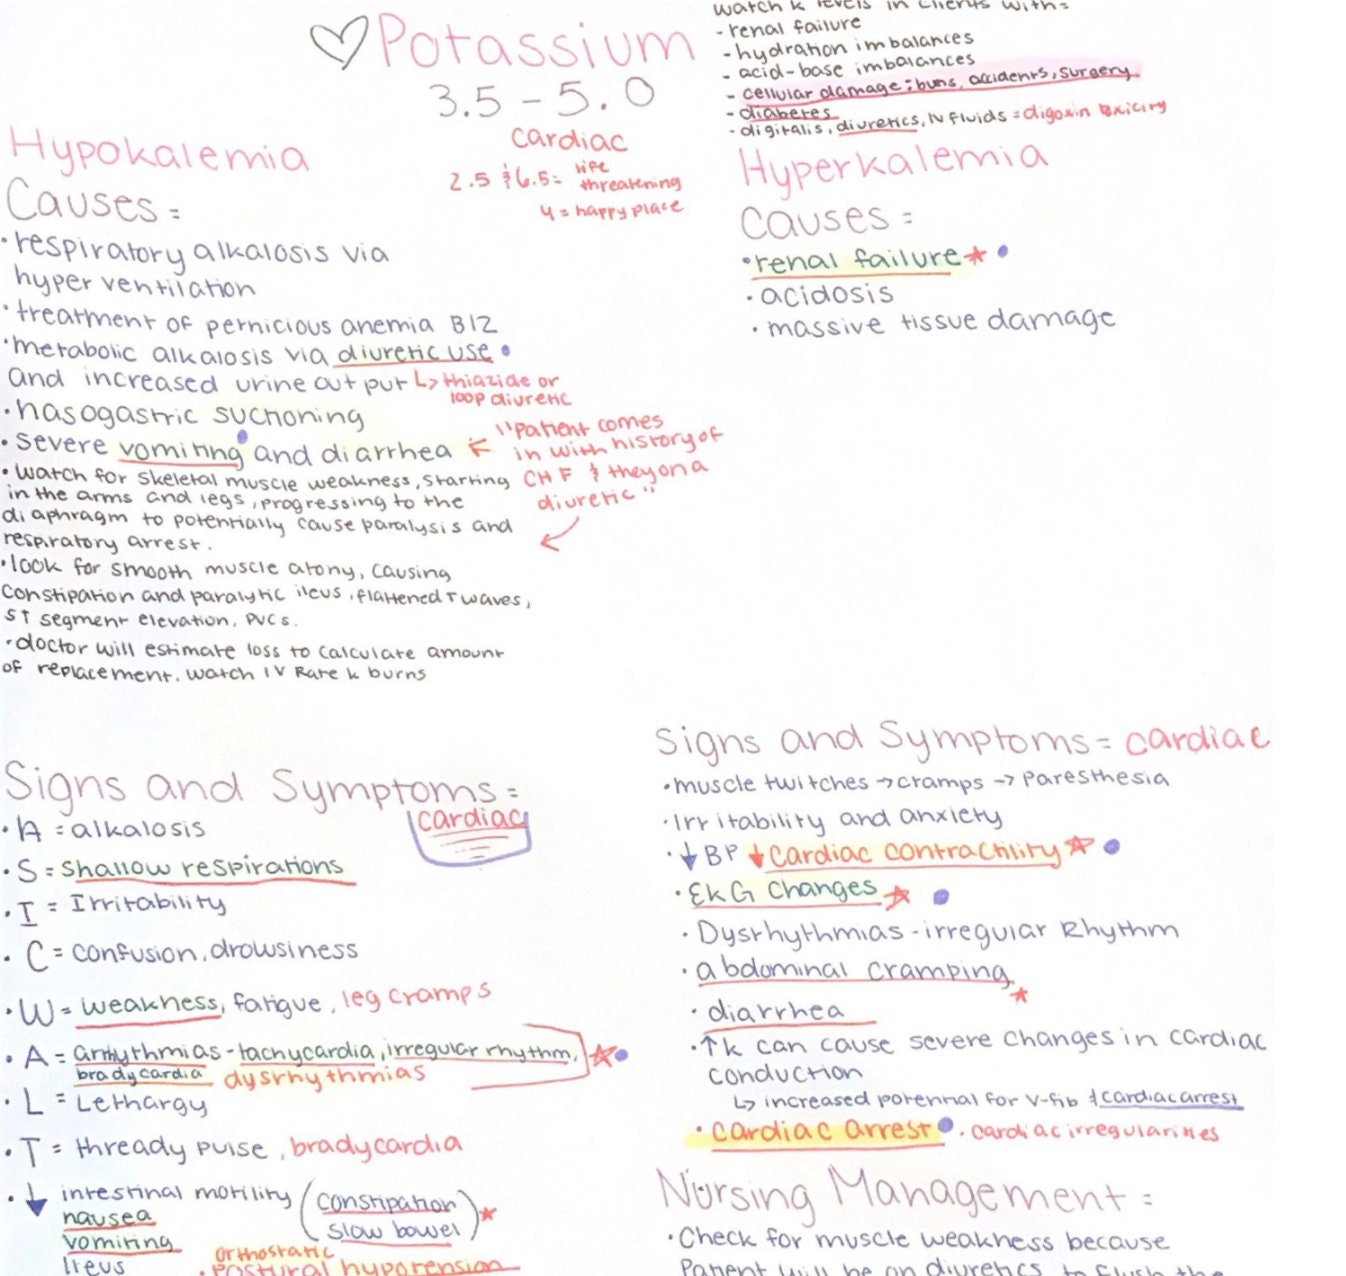 ♡ Potassium
3.5 - 5.0
cardiac
2.5 & 6.5 = life
threatening
4 = happy place
watch k levels in clients with =
- renal failure
- hydration imbalances
- acid-base imbalances
- cellular damage: burns, accidents, surgery
- diabetes
- digitalis, diuretics, IV fluids = digoxin toxicity
Hypokalemia
Causes =
• respiratory alkalosis via
hyper ventilation
• treatment of pernicious anemia B12
• metabolic alkalosis via diuretic use •
and increased urine output ↳ thiazide or
loop diuretic
• nasogastric suctioning
• severe vomiting and diarrhea ←
"Patient comes
in with history of
CHF & they on a
diuretic"
• watch for skeletal muscle weakness, starting
in the arms and legs, progressing to the
diaphragm to potentially cause paralysis and
respiratory arrest.
• look for smooth muscle atony, causing
constipation and paralytic ileus, flattened T waves,
ST segment elevation, PVCs.
• doctor will estimate loss to calculate amount
of replacement. watch IV Rate k burns
Hyperkalemia
Causes =
• renal failure ★ •
• acidosis
• massive tissue damage
Signs and Symptoms =
cardiac
• A = alkalosis
• S = shallow respirations
• I = Irritability
• C = confusion, drowsiness
• W = weakness, fatigue, leg cramps
• A = arrhythmias - tachycardia, irregular rhythm,
bradycardia dysrhythmias
• L = Lethargy
• T = thready pulse, bradycardia
• ↓ intestinal motility (constipation
slow bowel) ★
nausea
vomiting
Ileus
orthostatic
• Postural hypotension
Signs and Symptoms = cardiac
• muscle twitches → cramps → paresthesia
• Irritability and anxiety
• ↓ BP ↓ cardiac contractility ★ •
• EKG changes ★ •
• Dysrhythmias - irregular Rhythm
• abdominal cramping ★
• diarrhea
• ↑ k can cause severe changes in cardiac
conduction
↳ increased potential for v-fib & cardiac arrest
• cardiac arrest • • cardiac irregularities
Nursing Management =
• Check for muscle weakness because
Patient will be on diuretics to flush the